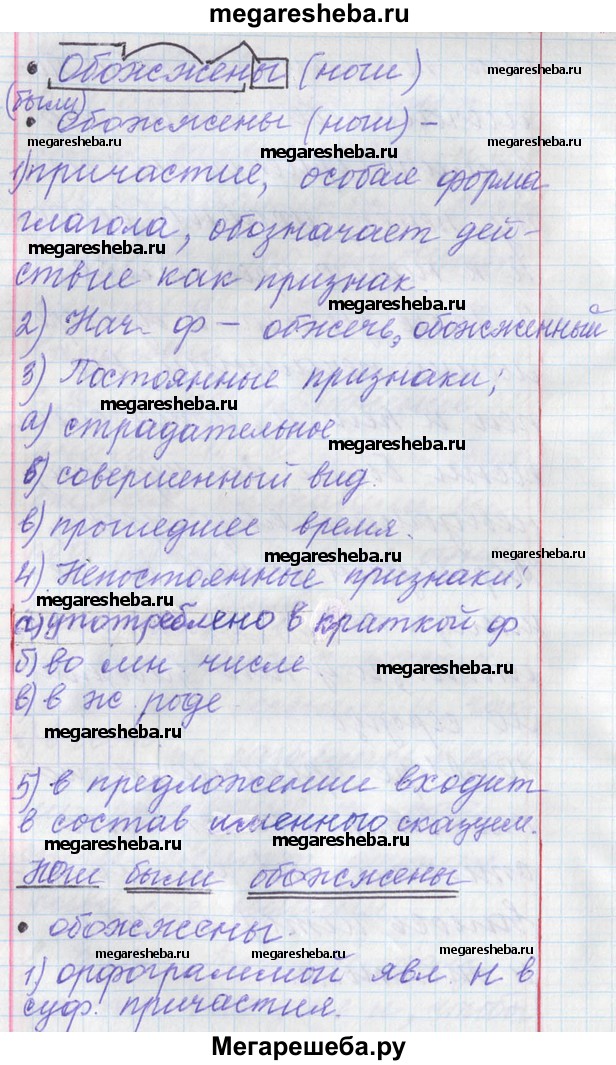 megaresheba.ru
• Обожжены (ноги)
megaresheba.ru megaresheba.ru
(были)
• Обожжены (ноги) –
megaresheba.ru megaresheba.ru
1) причастие, особая форма
глагола, обозначает дей-
megaresheba.ru
ствие как признак.
megaresheba.ru
2) Нач. ф – обжечь, обожженный
3) Постоянные признаки:
megaresheba.ru
а) страдательное
megaresheba.ru
б) совершенный вид.
в) прошедшее время.
megaresheba.ru megaresheba.ru
4) Непостоянные признаки:
megaresheba.ru
а) употреблено в краткой ф
б) во мн числе.
megaresheba.ru
в) в ж роде
megaresheba.ru
5) в предложении входит
в состав именного сказуем.
megaresheba.ru megaresheba.ru
Ноги были обожжены
• обожжены.
megaresheba.ru megaresheba.ru megaresheba.ru
1) орфограммой явл Н в
суф. причастия.
megaresheba.ru megaresheba.ru
Мегарешеба.ру